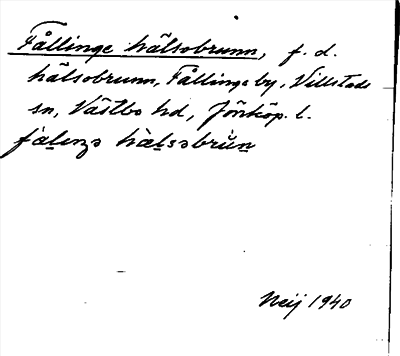 Fållinge hälsobrunn, f. d.
hälsobrunn, Fållinge by, Villstads
sn, Västbo hd, Jönköp. l.
Neij 1940